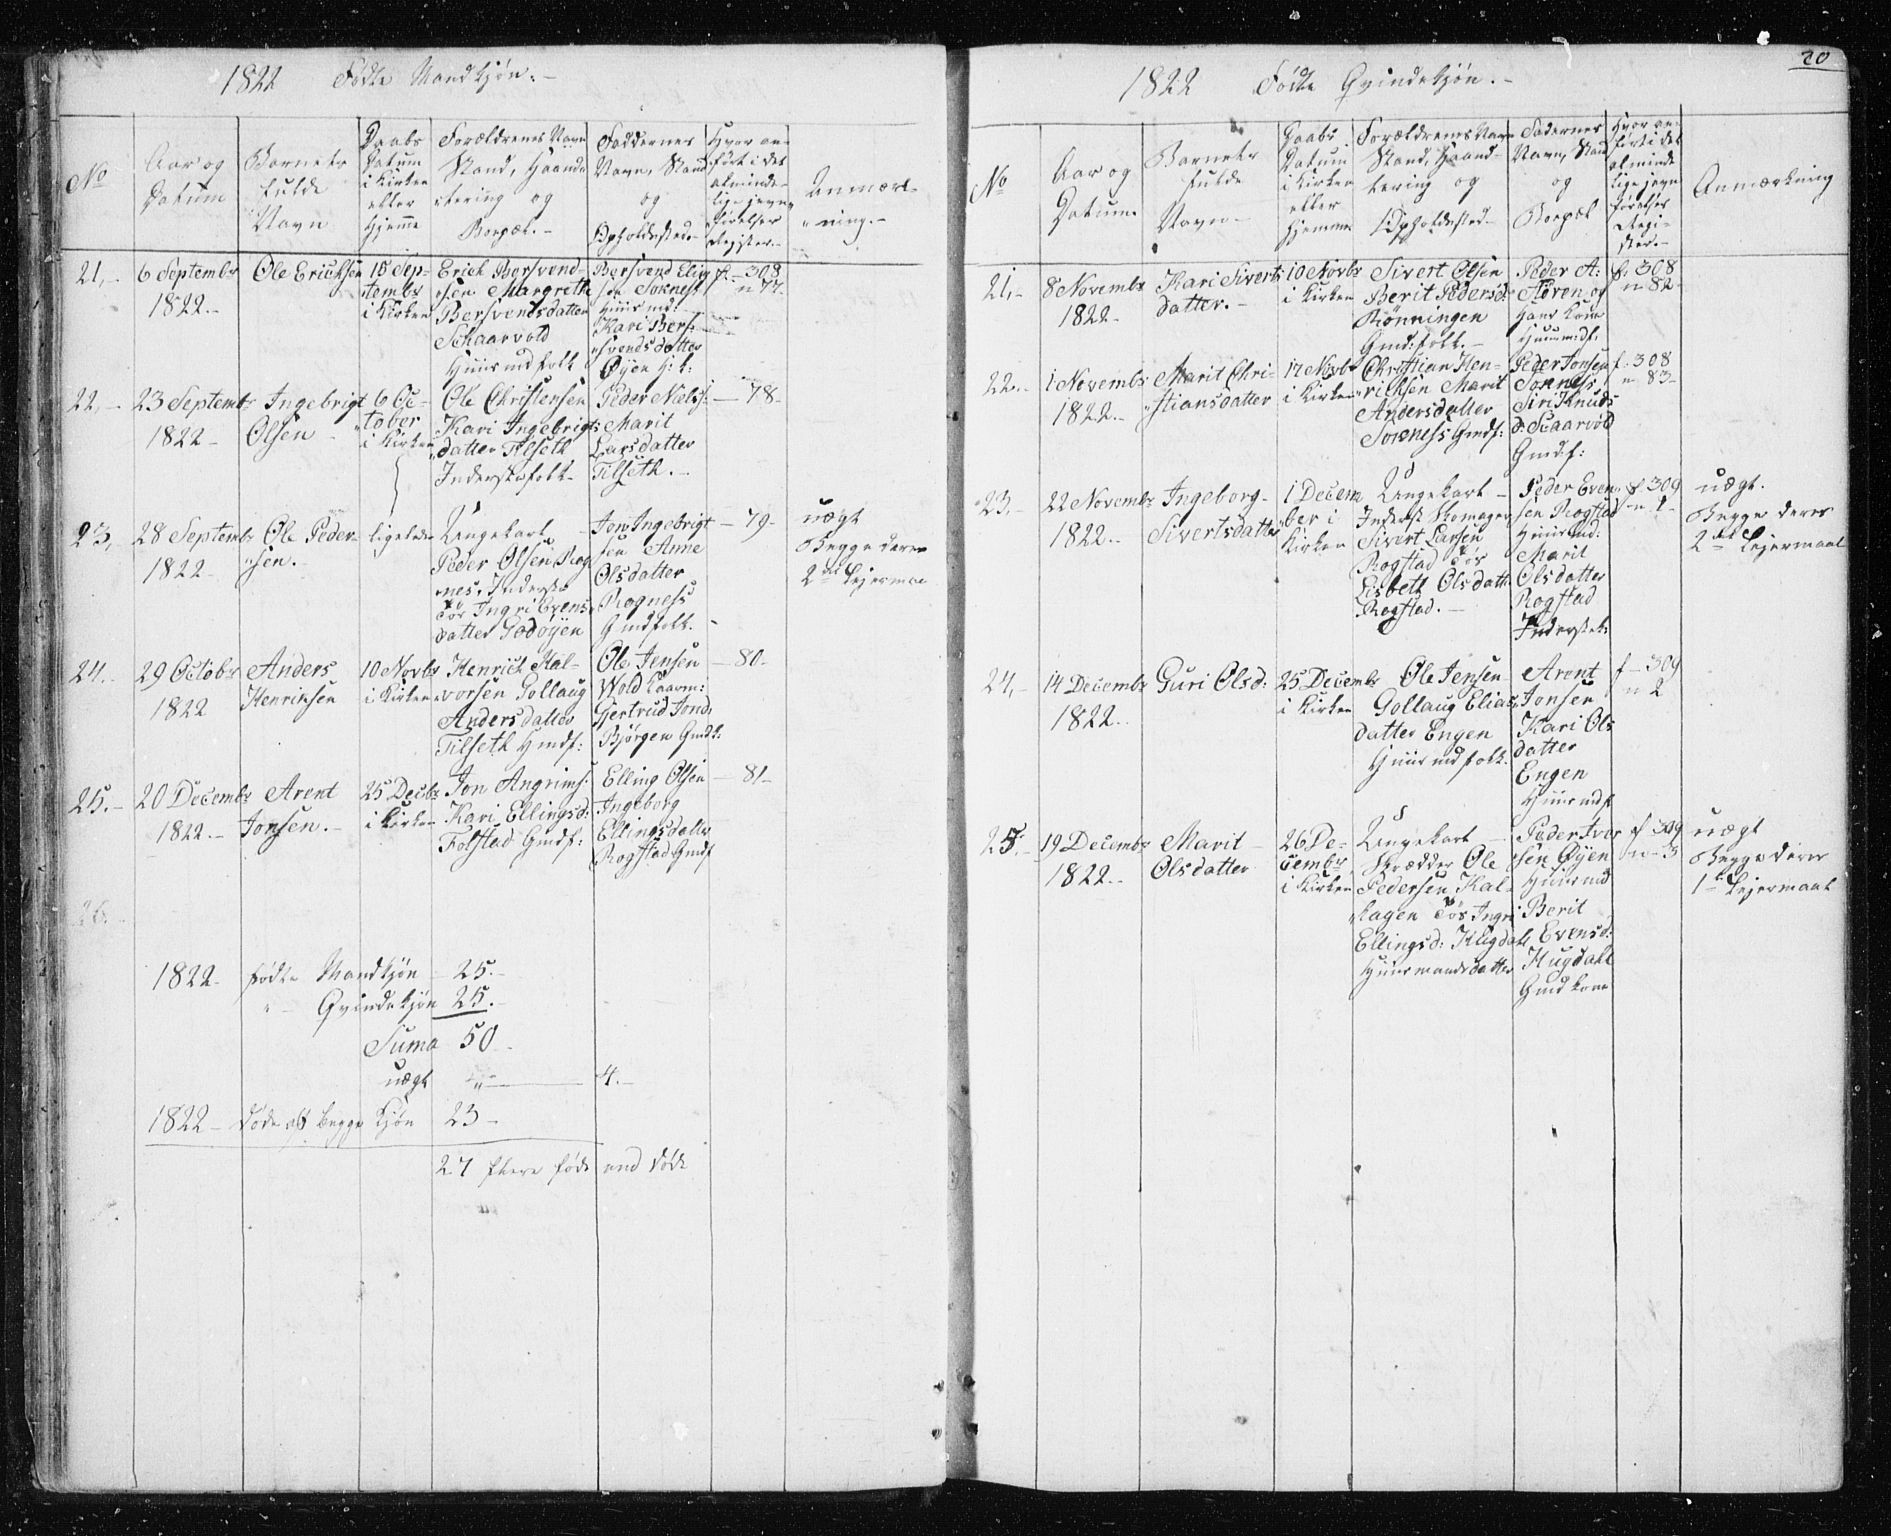 1822 Födte Mandkjön.-
No
Aar og
Datum
Barnets
fulde
Navn
Daabs
Datum
i Kirken
eller
Hjemme
Forældrenes Navn
Stand, Haand-
tering og
Boepæl.-
Faddernes
Navn, Stand
og
Opholdssted-
Hvor an-
fört i det
alminde-
lige jevn
förelses
Register.-
Anmærk-
ning.-
21,- 6 Septembr
1822.-
Ole Erichsen
15 Sep-
tembr
i Kirken
Erich Bersvend-
sen Margreth
Bersvendsdatter
Schaarvold
Huusmdfolk
Bersvend Elig
sen Soknes
Huusmd:
Kari Bers-
svendsdatter
Öyen H: k:
f- 308
n 77-
22,- 23 Septembr
1822-
Ingebrigt
Olsen-
6 Oc-
tober
i Kirken
Ole Christensen
Kari Ingebrigts
datter Tilseth
Inderstfolk-
Peder Niels:
Marit
Larsdatter
Tilseth.-
- 78-
23, 28 Septembr
1822-
Ole Peder-
sen.
ligeledes
Ungekarl-
Peder Olsen Rog
nes, Inderst
Tös Ingri Evens
datter Godöyen
Jon Ingebrigt
sen Anne
Olsdatter
Rogness
Gmdfolk.-
- 79-
uægt
Begge deres
2det Lejermaa
24.- 29 Octobr
1822
Anders
Henriksen
10 Novbr
i Kirken
Henrich Hal-
vorsen Gollaug
Andersdatter
Tilseth Hmdf:
Ole Jensen
Wold
Gjertrud Jonsd:
Bjørgen Gmdk:
- 80-
25.- 20 Decembr
1822.-
Arent
Jonsen.-
25 Decbr
i Kirken
Jon Angrims:
Kari Ellingsd:
Folstad Gmdf:
Elling Olsen
Ingeborg
Ellingsdatter
Rogstad Gmdf
- 81-
26.
1822- födte Mandkjön- 25.-
" - Qvindekjön 25.-
Suma 50
uægt " 4.-
1822- Döde af begge Kjön 23-
27 flere föde end döde
20
1822 Födte Qvindekjön.-
No
Aar og
Datum.
Barnets
fulde
Navn-
Daabs
Datum
i Kirken
eller
hjemme
Forældrenes Navn
Stand, Haand-
tering og
Opholdssted-
Fadernes
Navn, Stand
og
Boepæl
Hvor an-
fört i det
alminde
lige jevn
förelses
Regi-
ster.-
Anmærkning
21,- 8 Novembr
1822-
Kari Siverts
datter.-
10 Novbr
i Kirken
Sivert Olsen
Berit Pedersd:
Rönningen
Gmd:folk.-
Peder A:
Stören og
Hans Kone
Huusmdf.
f. 308
n 82-
22.- 1 Novembr
1822.-
Marit Chri-
stiansdatter
17 Novbr
i Kirken
Christian Hen-
richsen Marit
Andersdatter
Sokness Gmdf:
Peder Jonsen
Sokness
Siri Knuds
d: Scaarvold
Gmdf:
f- 308
n- 83-
23,- 22 Novembr
1822.-
Ingeborg-
Sivertsdatter
1 Decem
ber i
Kirken
Ungekarl-
Inderst Skomager
Sivert Larsen
Rogstad Tös
Lisbeth Olsdatt
Rogstad.-
Peder Even
sen Rogstad
Huusmd:
Marit
Olsdatter
Rogstad
Inderstek:
f 309
n- 1-
uægt.
Begge deres
2det Lejermaal
24,- 14 Decembr
1822.
Guri Olsd:
25 Decembr
i Kirken
Ole Jensen
Gollaug Elias
datter Engen
Huusmdfolk.
Arent
Jonsen
Kari Ols
datter
Engen
Huusmdf
f- 309
n 2
25.- 19 Decembr
1822.-
Marit-
Olsdatter
26 De-
cembr
i Kirken
Ungekarl-
Skrædder Ole
Pedersen Kal-
dagen Tös Ingri
Ellingsd: Hugdal
Huusmandsdatter
Peder Iver
sen Öyen
Huusmd
Berit
Evensd:
Hugdahl
Gmdkone
f 309
n- 3
uægt
Begge deres
1te Lejermaal